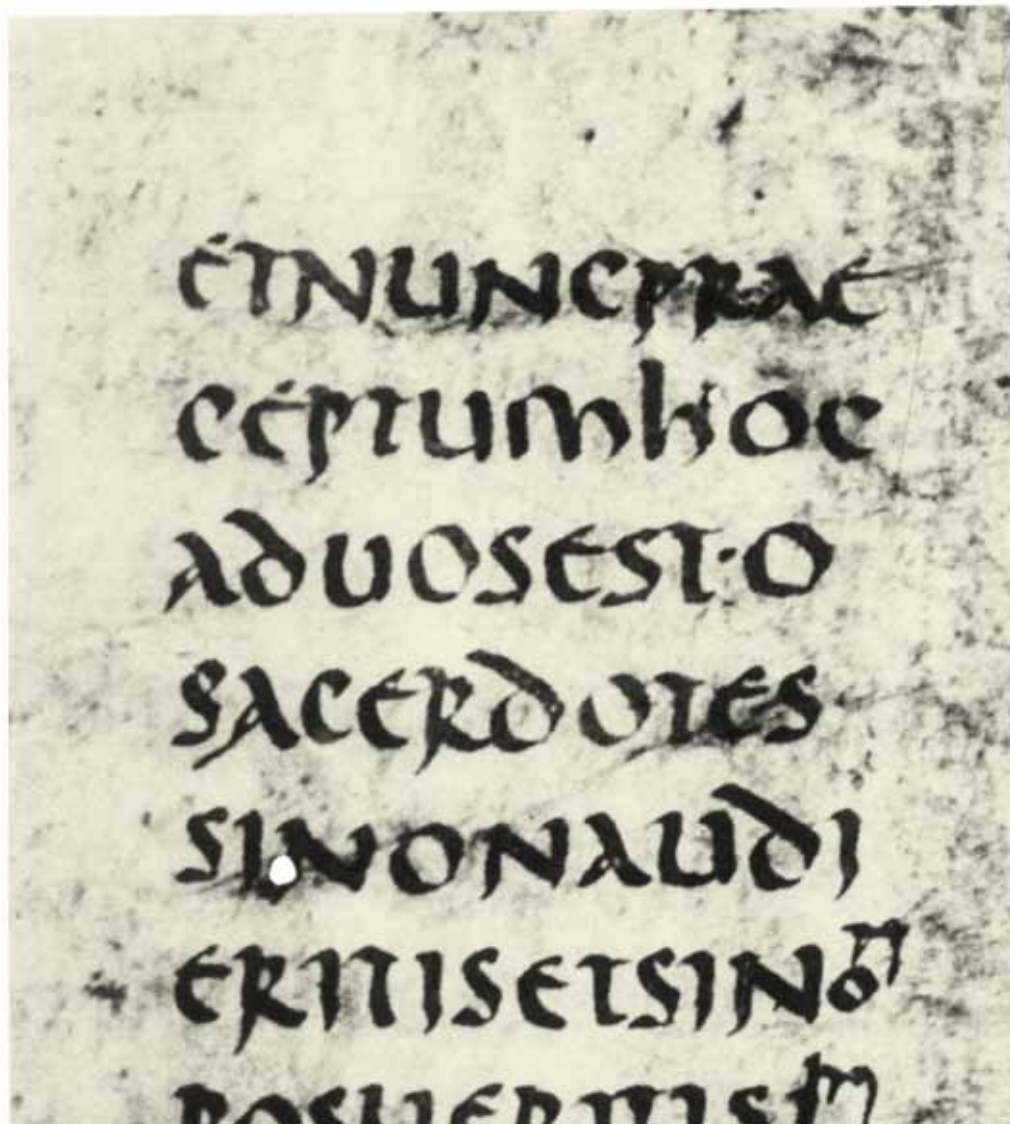 ETNUNCPRAE
CEPTUMHOC
ADUOSEST·O
SACERDOTES
SINONAUDI
ERITISETSINON
POSUERITIS